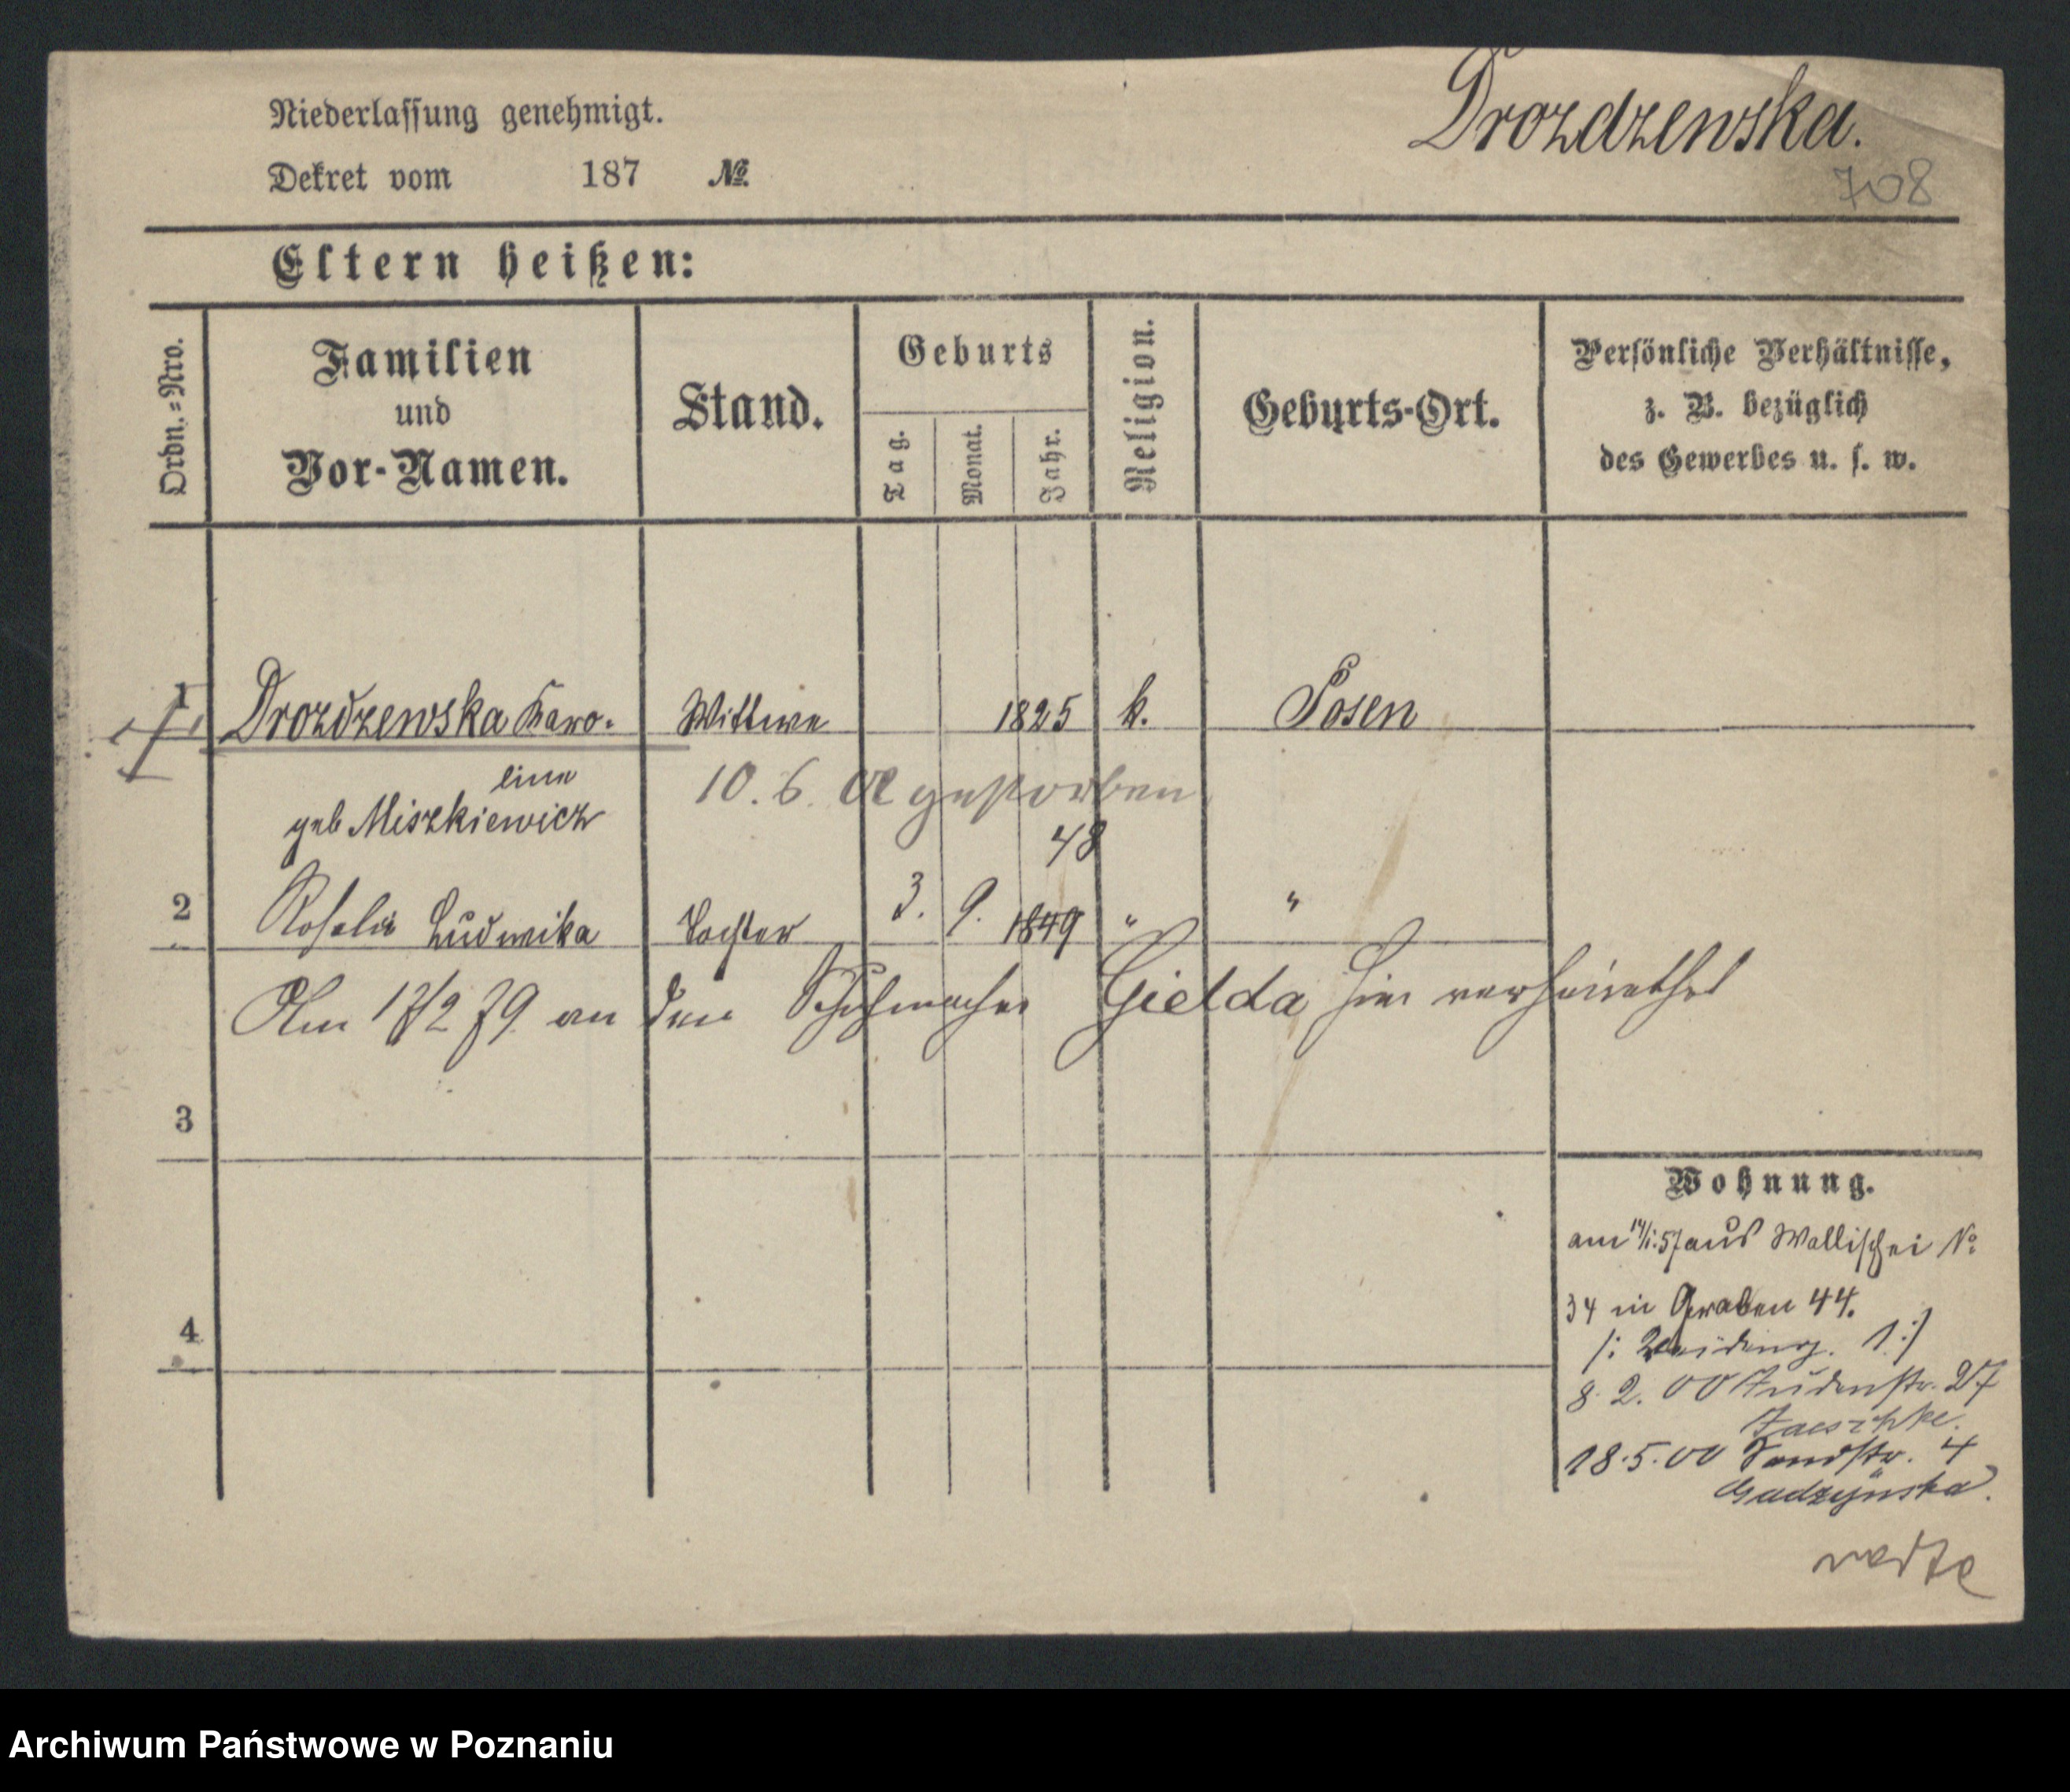 Niederlassung genehmigt.
Drozdzewska.
Dekret vom 187 №
708
Eltern heißen:
Ordn.=Nro.
Familien
und
Vor-Namen.
Stand.
Geburts
Tag.
Monat.
Jahr.
Religion.
Geburts-Ort.
Persönliche Verhältnisse,
z. B. bezüglich
des Gewerbes u. s. w.
1 Drozdzewska Karo- Wittwe 1825 k. Posen
line
10. 6. gestorben
geb Miszkiewicz
48
2 Rosalia Ludwika Tochter 3. 9. 1849 " "
Am 17/2 79 an den Schuhmacher Gielda hier verheirathet
3
Wohnung.
am 14/1.57 aus Wallischei No
34 in Graben 44.
4
8. 2. 00 Judenstr. 27
Jaeschke.
18.5.00 Sandstr. 4
Gadzynska.
Archiwum Państwowe w Poznaniu